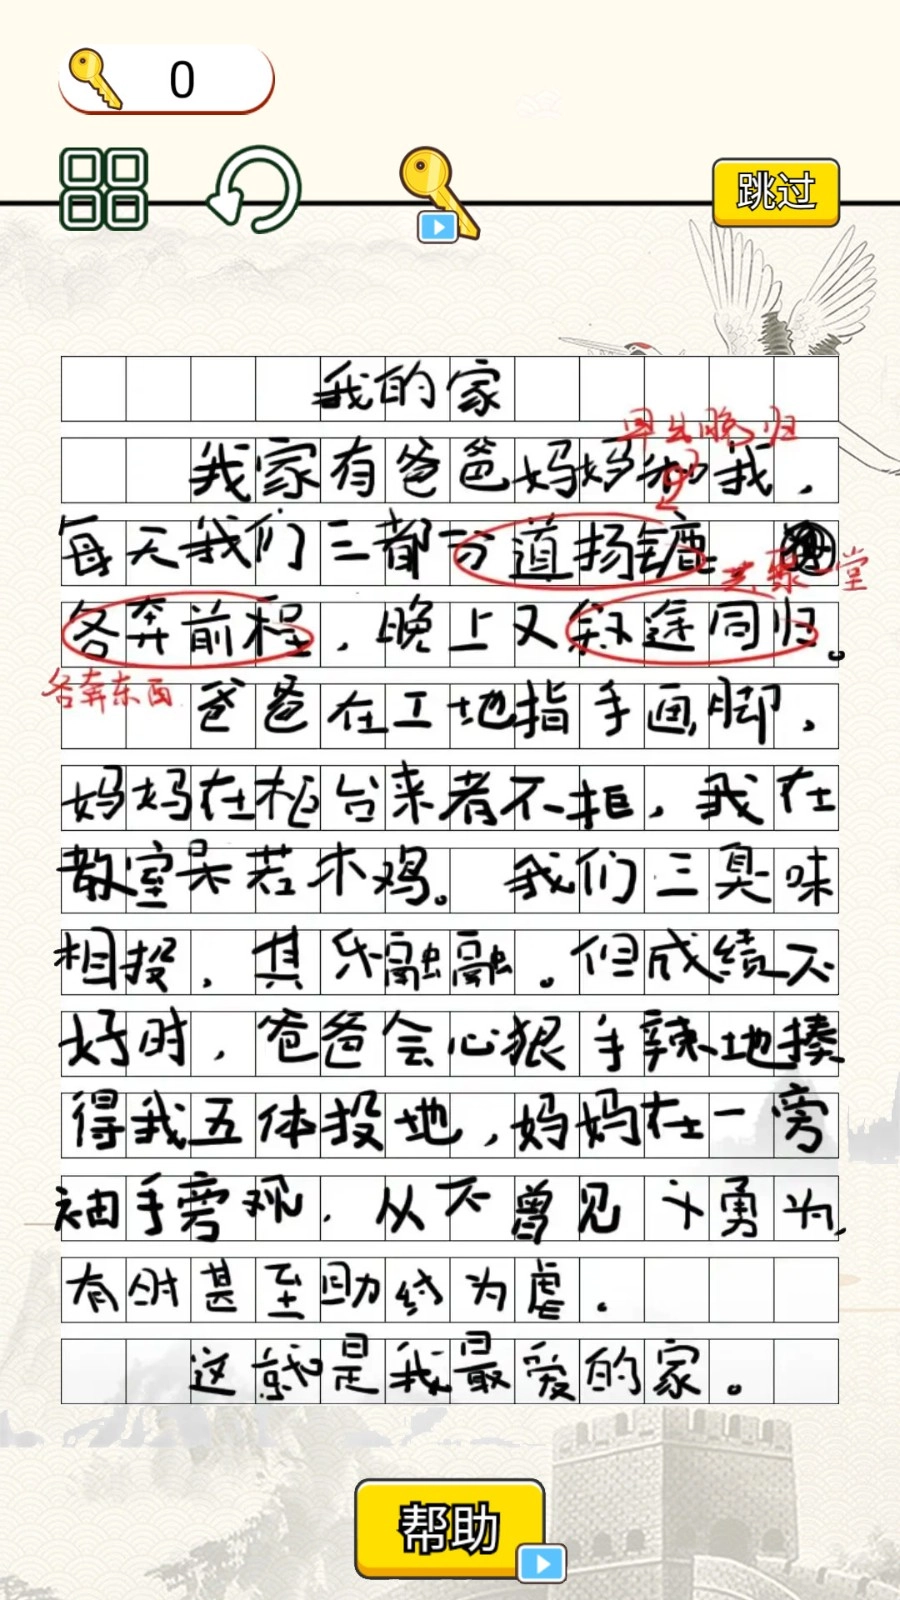 0
跳过
我的家
早出晚归
我家有爸爸妈妈和我，
每天我们三都分道扬镳
共聚一堂
各奔前程，晚上又殊途同归。
各奔东西
爸爸在工地指手画脚，
妈妈在柜台来者不拒，我在
教室呆若木鸡。我们三臭味
相投，其乐融融。但成绩不
好时，爸爸会心狠手辣地揍
得我五体投地，妈妈在一旁
袖手旁观，从不曾见义勇为，
有时甚至助纣为虐．
这就是我最爱的家。
帮助